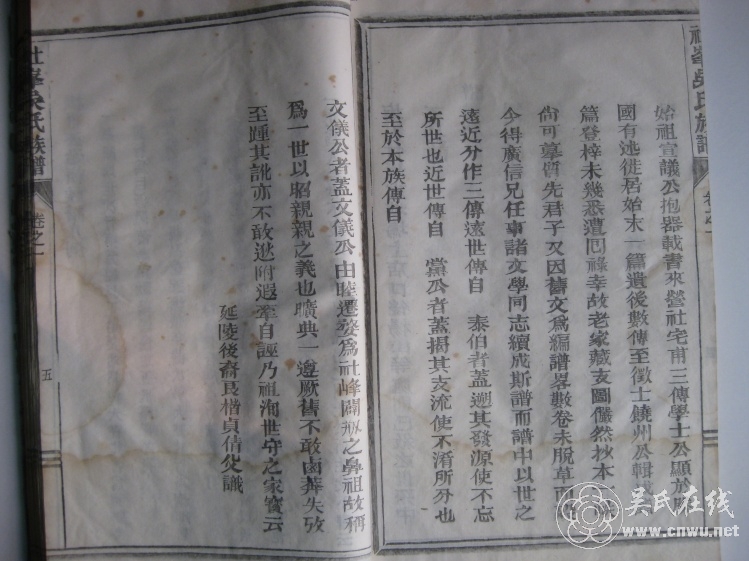 社峯吳氏族譜
卷之一
始祖宣議公抱器載書來營社宅甫三傳學士公顯於
國有述徙居始末一篇遺後數傳至徵士饒州公輯
篇登梓未幾悉遭回祿幸故老家藏支圖儼然抄本
尙可摹質先君子又因舊文爲編譜畧數卷未脱草而
今得廣信兄任事諸文學同志續成斯譜而譜中以世之
遠近分作三傳遠世傳自 泰伯者蓋遡其發源使不忘
所世也近世傳自 黨公者蓋揭其支流使不淆所分也
至於本族傳自
文儀公者蓋文儀公由睦遷婺爲社峰開派之鼻祖故稱
爲一世以昭親親之義也曠典一遵厥舊不敢鹵莽失攷
至踵其訛亦不敢逖附遐牽自誣乃祖洵世守之家寶云
延陵後裔艮楷貞倩父識
社峯吳氏族譜
卷之一
五
吴氏在线
www.cnwu.net